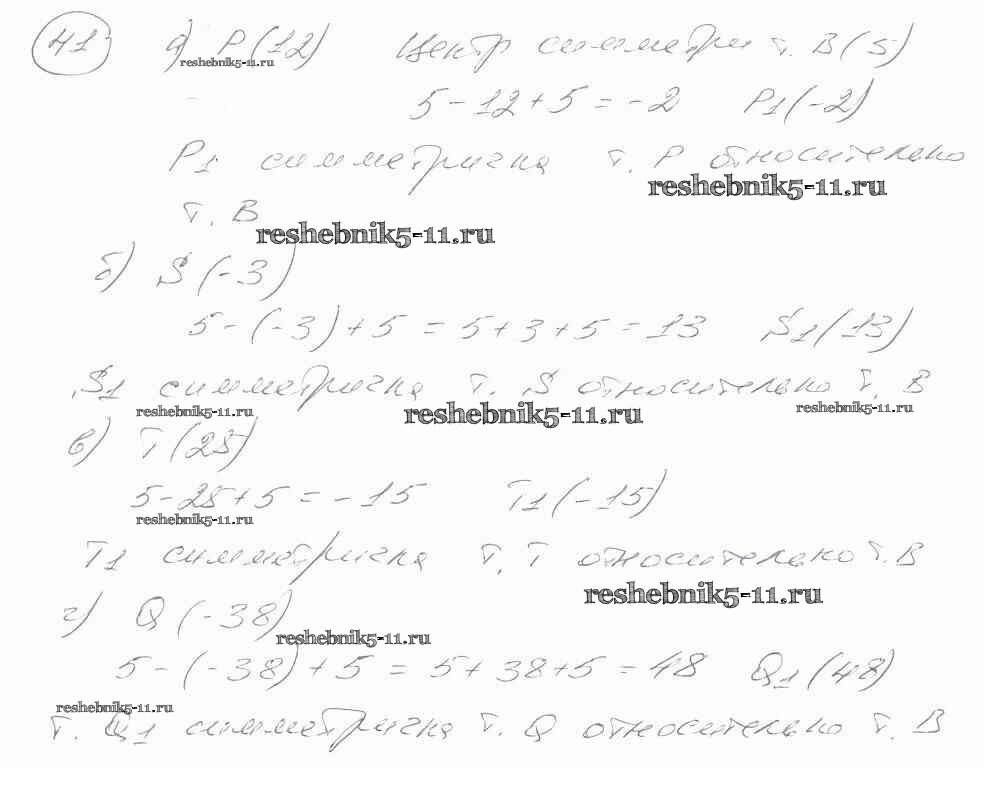 41 а) P(12) Центр симметрии т. B(5)
reshebnik5-11.ru
5-12+5=-2 P1(-2)
P1 симметрична т. P относительно
reshebnik5-11.ru
т. B
reshebnik5-11.ru
б) S(-3)
5-(-3)+5=5+3+5=13 S1(13)
S1 симметрична т. S относительно т. B
reshebnik5-11.ru reshebnik5-11.ru reshebnik5-11.ru
в) T(25)
5-25+5=-15 T1(-15)
reshebnik5-11.ru
T1 симметрична т. T относительно т. B
reshebnik5-11.ru
г) Q(-38)
reshebnik5-11.ru
5-(-38)+5=5+38+5=48 Q1(48)
reshebnik5-11.ru
т. Q1 симметрична т. Q относительно т. B